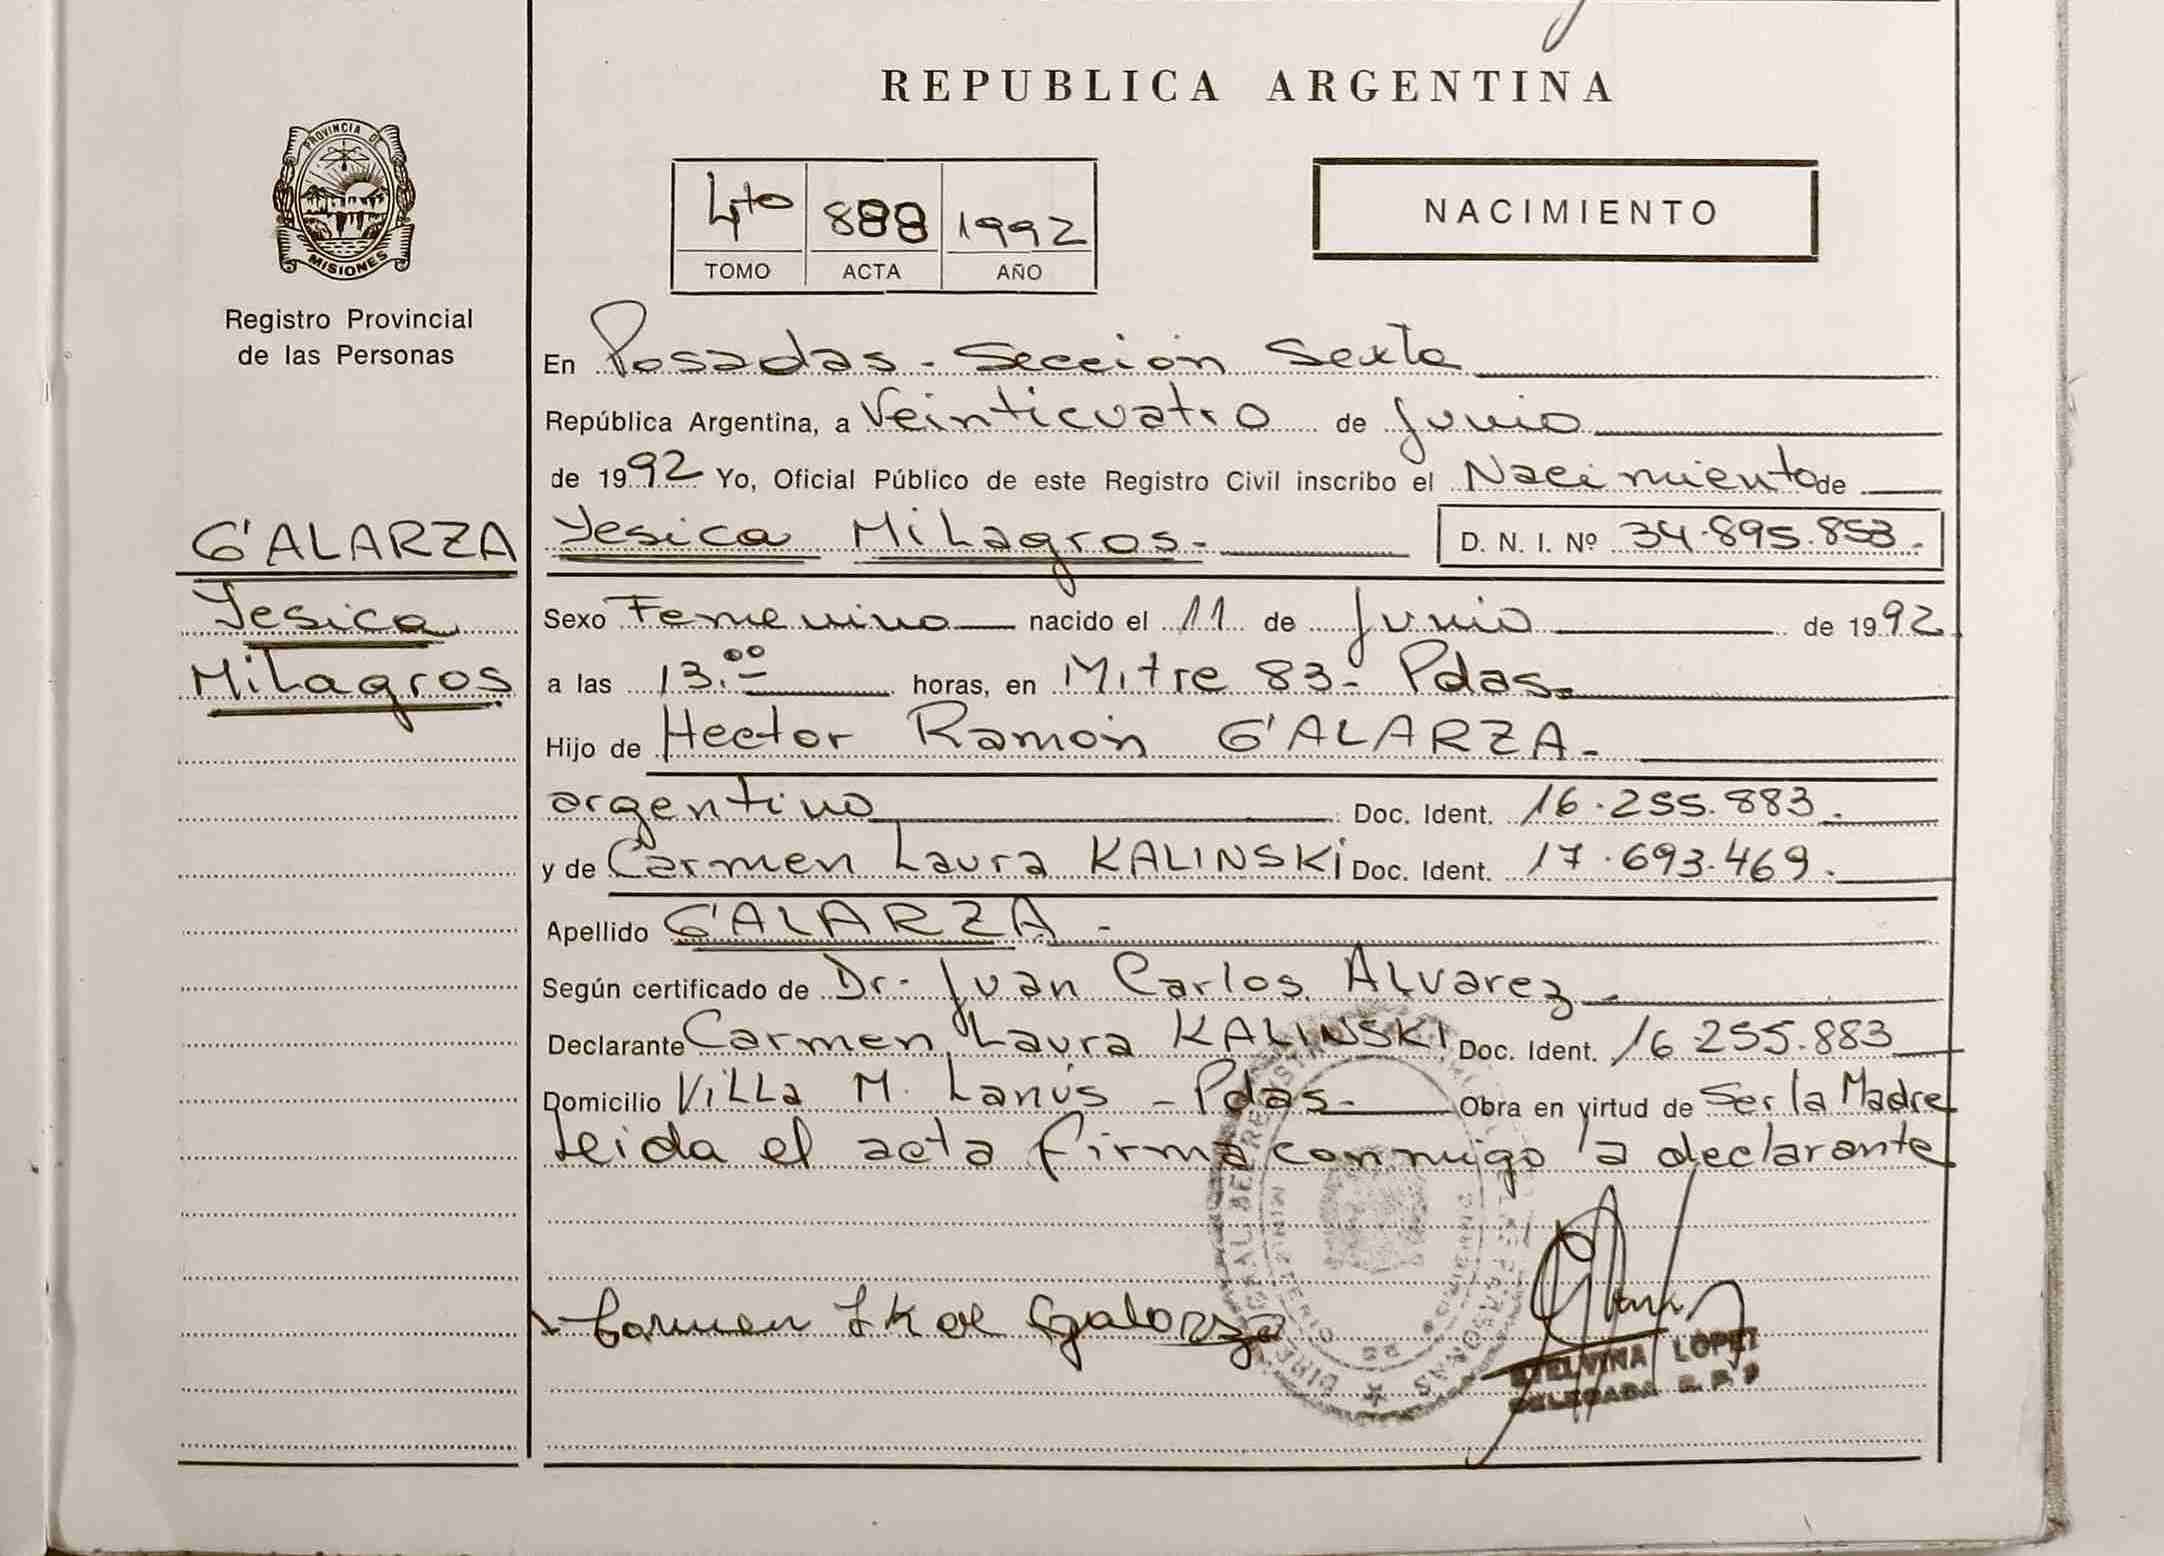 REPUBLICA ARGENTINA
PROVINCIA DE
MISIONES
Registro Provincial
de las Personas
4to 888 1992
TOMO ACTA AÑO
NACIMIENTO
En Posadas - Sección Sexta
República Argentina, a Veinticuatro de Junio
de 1992 Yo, Oficial Público de este Registro Civil inscribo el Nacimiento de
G'ALARZA
Yesica
Milagros
Yesica Milagros.- D. N. I. Nº 34.895.853.-
Sexo Femenino nacido el 11 de Junio de 1992
a las 13.00 horas, en Mitre 83- Pdas.
Hijo de Hector Ramón G'ALARZA.-
argentino Doc. Ident. 16.255.883.-
y de Carmen Laura KALINSKI Doc. Ident. 17.693.469.-
Apellido G'ALARZA.-
Según certificado de Dr. Juan Carlos Alvarez.-
Declarante Carmen Laura KALINSKI Doc. Ident. 16.255.883
Domicilio Villa M. Lanús - Pdas.- Obra en virtud de Ser la Madre
Leida el acta firma conmigo la declarante
Carmen Galarza
ETELVINA LOPEZ
DELEGADA R. P. P